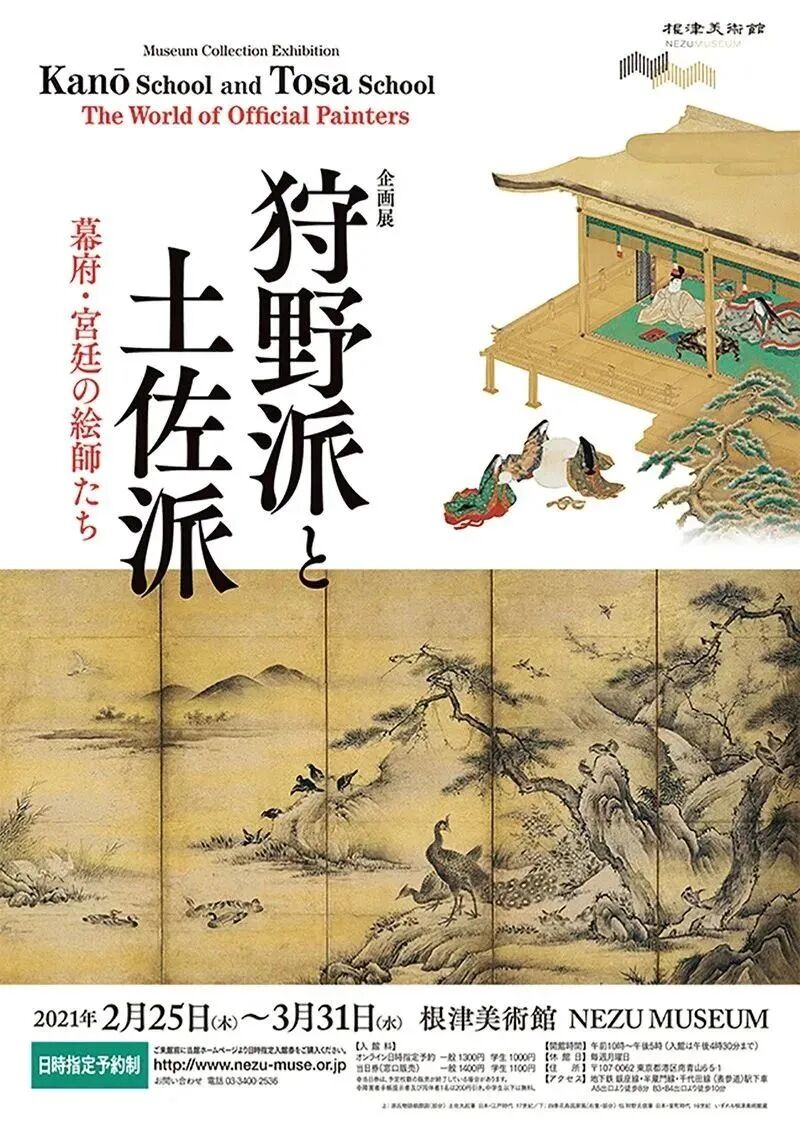 根津美術館
NEZUMUSEUM
Museum Collection Exhibition
Kanō School and Tosa School
The World of Official Painters
企画展
狩野派と
土佐派
幕府・宮廷の絵師たち
2021年 2月25日(木)〜3月31日(水) 根津美術館 NEZU MUSEUM
日時指定予約制
ご来館前に当館ホームページより日時指定入館券をご購入ください。
http://www.nezu-muse.or.jp
お問い合わせ 電話 03-3400 2536
【入館料】
オンライン日時指定予約 一般 1300円 学生 1000円
当日券(窓口販売) 一般 1400円 学生 1100円
※当日券は、予定枚数の販売が終了している場合があります。
※障害者手帳提示者及び同伴者1名は200円引き、中学生以下は無料。
【開館時間】 午前10時〜午後5時(入館は午後4時30分まで)
【休館日】 毎週月曜日
【住所】 〒107-0062 東京都港区南青山6 5-1
【アクセス】 地下鉄 銀座線・半蔵門線・千代田線〈表参道〉駅下車
A5出口より徒歩8分 B3・B4出口より徒歩10分